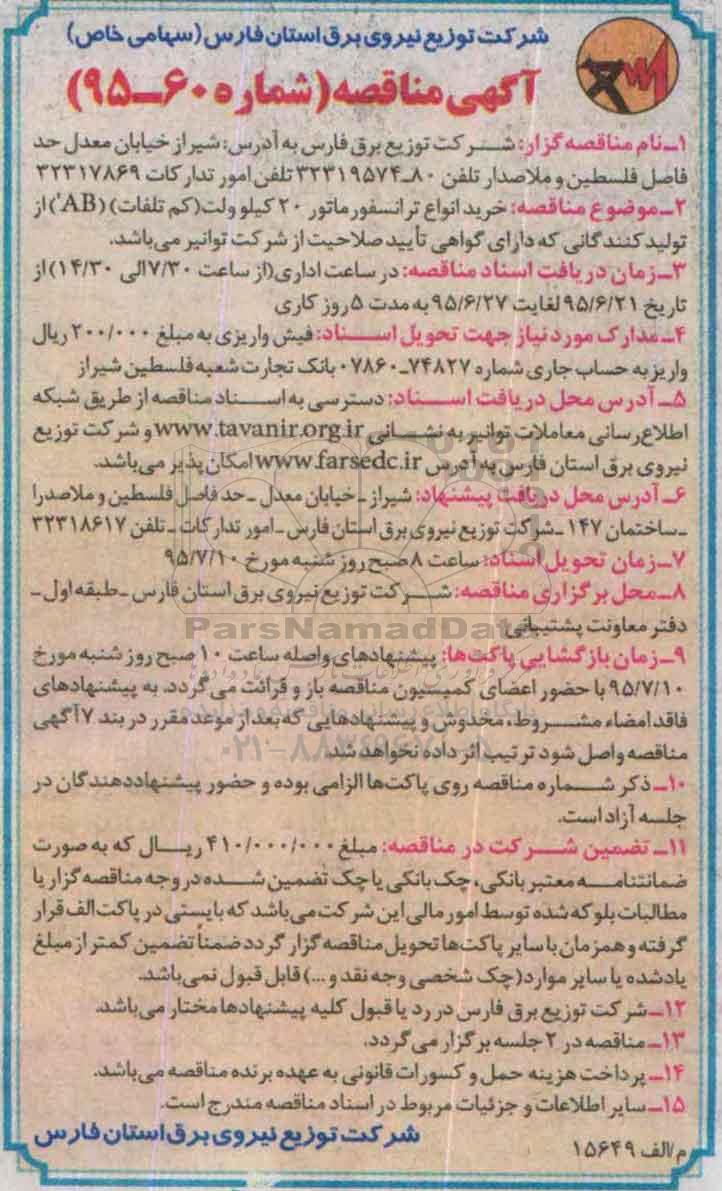 شرکت توزیع نیروی برق استان فارس (سهامی خاص)
آگهی مناقصه (شماره ۶۰-۹۵)
۱ـ نام مناقصه گزار: شرکت توزیع برق فارس به آدرس: شیراز خیابان معدل حد
فاصل فلسطین و ملاصدار تلفن ۸۰ـ۳۲۳۱۹۵۷۴ تلفن امور تدارکات ۳۲۳۱۷۸۶۹
۲ـ موضوع مناقصه: خرید انواع ترانسفورماتور ۲۰ کیلو ولت (کم تلفات) (AB') از
تولید کنندگانی که دارای گواهی تأیید صلاحیت از شرکت توانیر می‌باشد.
۳ـ زمان دریافت اسناد مناقصه: در ساعت اداری (از ساعت ۷/۳۰ الی ۱۴/۳۰) از
تاریخ ۹۵/۶/۲۱ لغایت ۹۵/۶/۲۷ به مدت ۵ روز کاری
۴ـ مدارک مورد نیاز جهت تحویل اسناد: فیش واریزی به مبلغ ۲۰۰/۰۰۰ ریال
واریز به حساب جاری شماره ۷۴۸۲۷ـ۰۷۸۶۰ بانک تجارت شعبه فلسطین شیراز
۵ـ آدرس محل دریافت اسناد: دسترسی به اسناد مناقصه از طریق شبکه
اطلاع رسانی معاملات توانیر به نشانی www.tavanir.org.ir و شرکت توزیع
نیروی برق استان فارس به آدرس www.farsedc.ir امکان پذیر می‌باشد.
۶ـ آدرس محل دریافت پیشنهاد: شیراز ـ خیابان معدل ـ حد فاصل فلسطین و ملاصدرا
ـ ساختمان ۱۴۷ ـ شرکت توزیع نیروی برق استان فارس ـ امور تدارکات ـ تلفن ۳۲۳۱۸۶۱۷
۷ـ زمان تحویل اسناد: ساعت ۸ صبح روز شنبه مورخ ۹۵/۷/۱۰
۸ـ محل برگزاری مناقصه: شرکت توزیع نیروی برق استان فارس ـ طبقه اول ـ
دفتر معاونت پشتیبانی
ParsNamadData
۹ـ زمان بازگشایی پاکت‌ها: پیشنهادهای واصله ساعت ۱۰ صبح روز شنبه مورخ
۹۵/۷/۱۰ با حضور اعضای کمیسیون مناقصه باز و قرائت می گردد. به پیشنهادهای
فاقد امضاء مشروط، مخدوش و پیشنهادهایی که بعد از موعد مقرر در بند ۷ آگهی
مناقصه واصل شود ترتیب اثر داده نخواهد شد.
۱۰ـ ذکر شماره مناقصه روی پاکت‌ها الزامی بوده و حضور پیشنهاددهندگان در
جلسه آزاد است.
۱۱ـ تضمین شرکت در مناقصه: مبلغ ۴۱۰/۰۰۰/۰۰۰ ریال که به صورت
ضمانتنامه معتبر بانکی، چک بانکی یا چک تضمین شده در وجه مناقصه گزار یا
مطالبات بلوکه شده توسط امور مالی این شرکت می‌باشد که بایستی در پاکت الف قرار
گرفته و همزمان با سایر پاکت‌ها تحویل مناقصه گزار گردد ضمناً تضمین کمتر از مبلغ
یادشده یا سایر موارد (چک شخصی وجه نقد و...) قابل قبول نمی‌باشد.
۱۲ـ شرکت توزیع برق فارس در رد یا قبول کلیه پیشنهادها مختار می‌باشد.
۱۳ـ مناقصه در ۲ جلسه برگزار می گردد.
۱۴ـ پرداخت هزینه حمل و کسورات قانونی به عهده برنده مناقصه می‌باشد.
۱۵ـ سایر اطلاعات و جزئیات مربوط در اسناد مناقصه مندرج است.
شرکت توزیع نیروی برق استان فارس
م/الف ۱۵۶۴۹